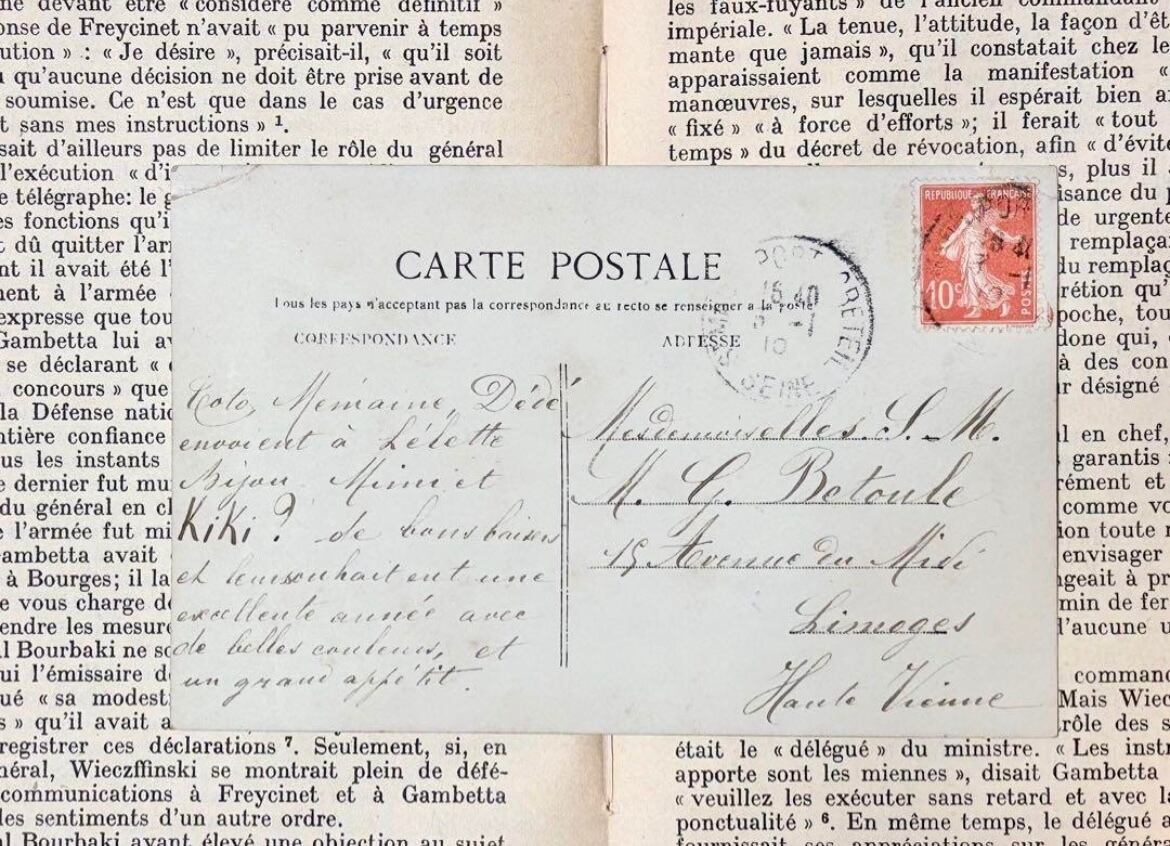 ne devant être « considéré comme définitif »
onse de Freycinet n'avait « pu parvenir à temps
ution » : « Je désire », précisait-il, « qu'il soit
qu'aucune décision ne doit être prise avant de
soumise. Ce n'est que dans le cas d'urgence
t sans mes instructions » ¹.
sait d'ailleurs pas de limiter le rôle du général
l'exécution « d'i
e télégraphe: le g
es fonctions qu'i
t dû quitter l'arr
nt il avait été l'
ment à l'armée
expresse que tou
Gambetta lui av
se déclarant «
concours » que
la Défense natio
ntière confiance
us les instants
e dernier fut mu
du général en ch
e l'armée fut mi
Gambetta avait
à Bourges; il la
e vous charge de
endre les mesure
l Bourbaki ne so
ui l'émissaire de
ué « sa modest
s » qu'il avait a
registrer ces déclarations ⁷. Seulement, si, en
néral, Wieczffinski se montrait plein de défé-
communications à Freycinet et à Gambetta
les sentiments d'un autre ordre.
al Bourbaki ayant élevé une objection au sujet
les faux-fuyants » de l'ancien commandant
impériale. « La tenue, l'attitude, la façon d'êt
mante que jamais », qu'il constatait chez le
apparaissaient comme la manifestation «
manœuvres, sur lesquelles il espérait bien a
« fixé » « à force d'efforts »; il ferait « tout
temps » du décret de révocation, afin « d'évite
s, plus il
isance du p
de urgente
remplaça
du remplaç
rétion qu'
poche, tou
done qui,
à des con
r désigné
l en chef,
garantis
rément et
comme vo
ion toute n
envisager
ngeait à pr
min de fer
l'aucune u
command
Mais Wiec
rôle des s
était le « délégué » du ministre. « Les instr
apporte sont les miennes », disait Gambetta
« veuillez les exécuter sans retard et avec la
ponctualité » ⁶. En même temps, le délégué a
fournissait ses appréciations sur les génér
CARTE POSTALE
Tous les pays n'acceptant pas la correspondance au recto se renseigner à la poste
CORRESPONDANCE
ADRESSE
REPUBLIQUE FRANÇAISE
10c
POSTES
PORT CRETEIL
16 40
5 - 1
10
SEINE
Toto, Mémaine, Dédé
envoient à Lélette
Bijou Mimi et
KiKi ? de bons baisers
et leur souhaitent une
excellente année avec
de belles couleurs, et
un grand appétit.
Mesdemoiselles S. M.
M. G. Betoule
15 Avenue du Midi
Limoges
Haute Vienne